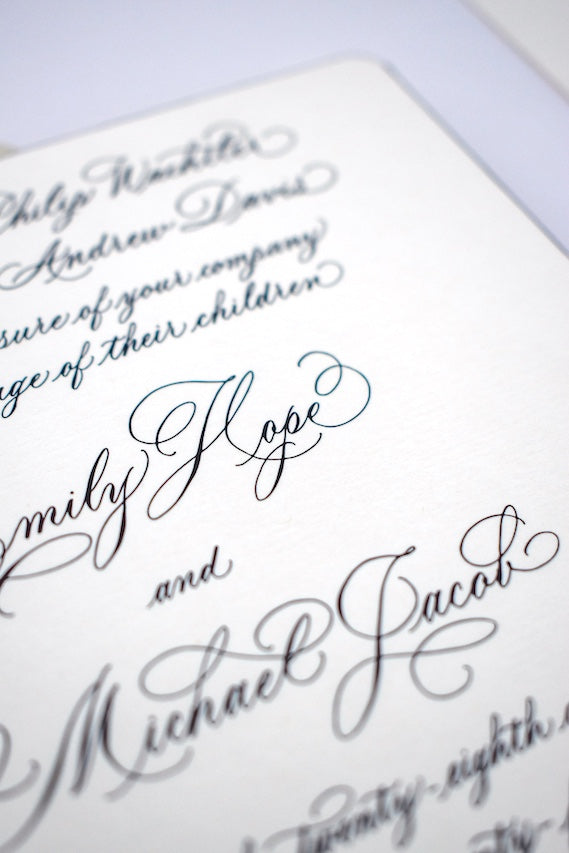 Philip Wachtler
Andrew Davis
sure of your company
age of their children
Emily Hope
and
Michael Jacob
twenty-eighth